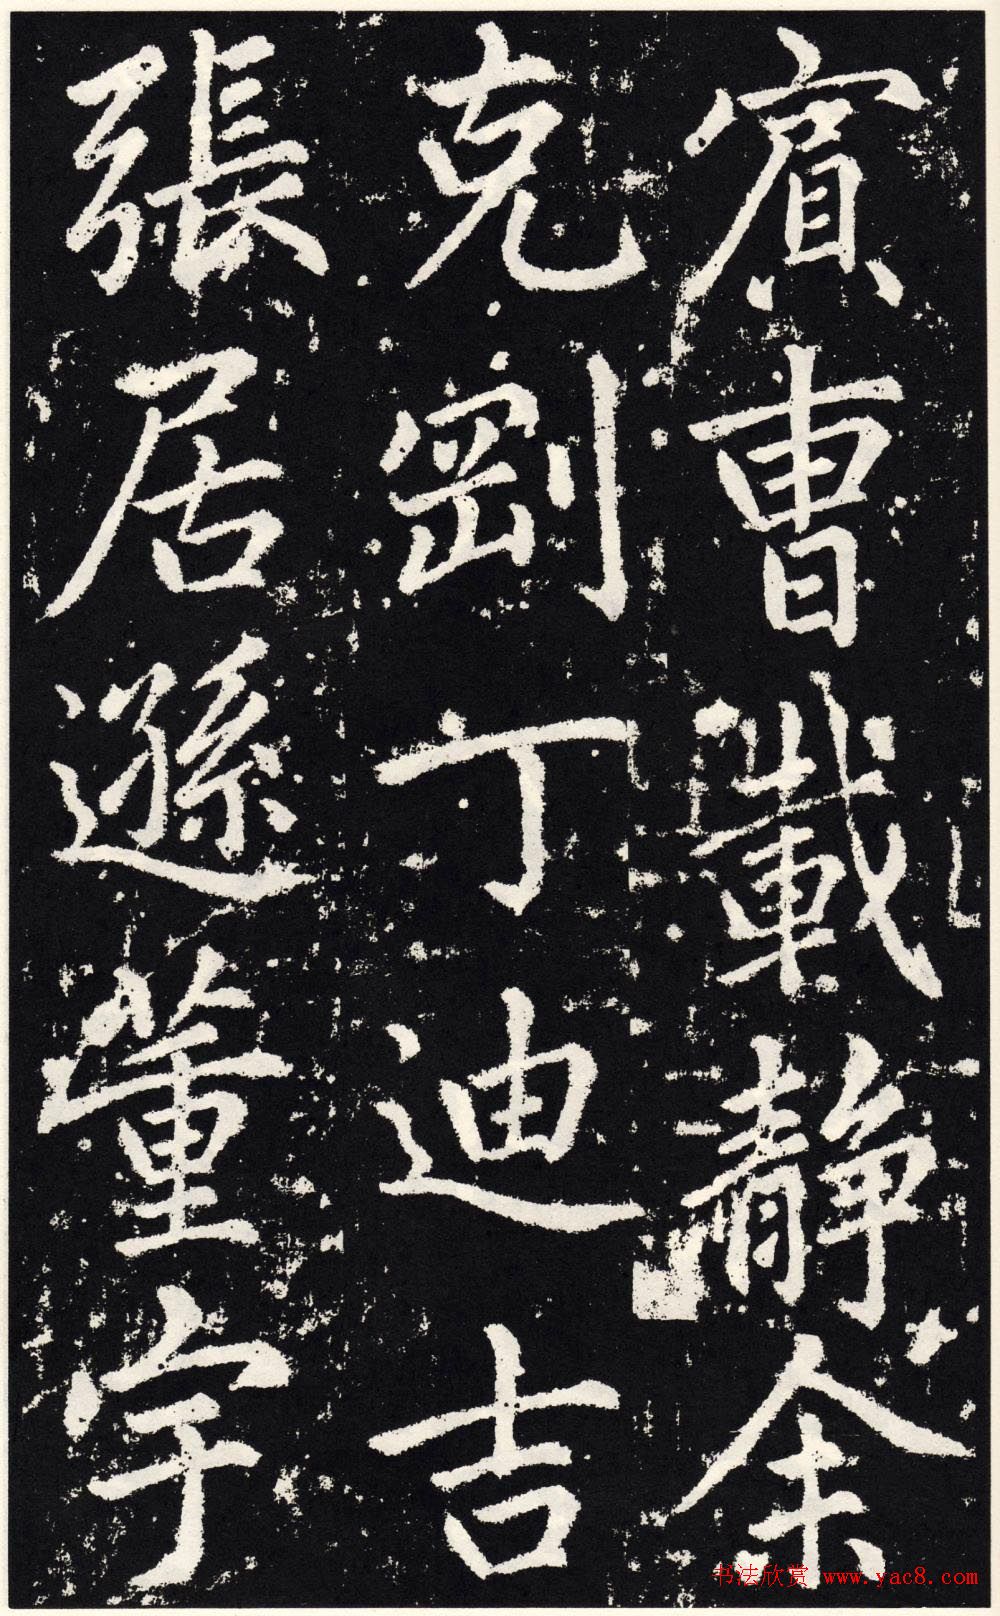 賔曹戴靜余
克劉丁迪吉
張居遜董宇
书法欣赏 www.yac8.com